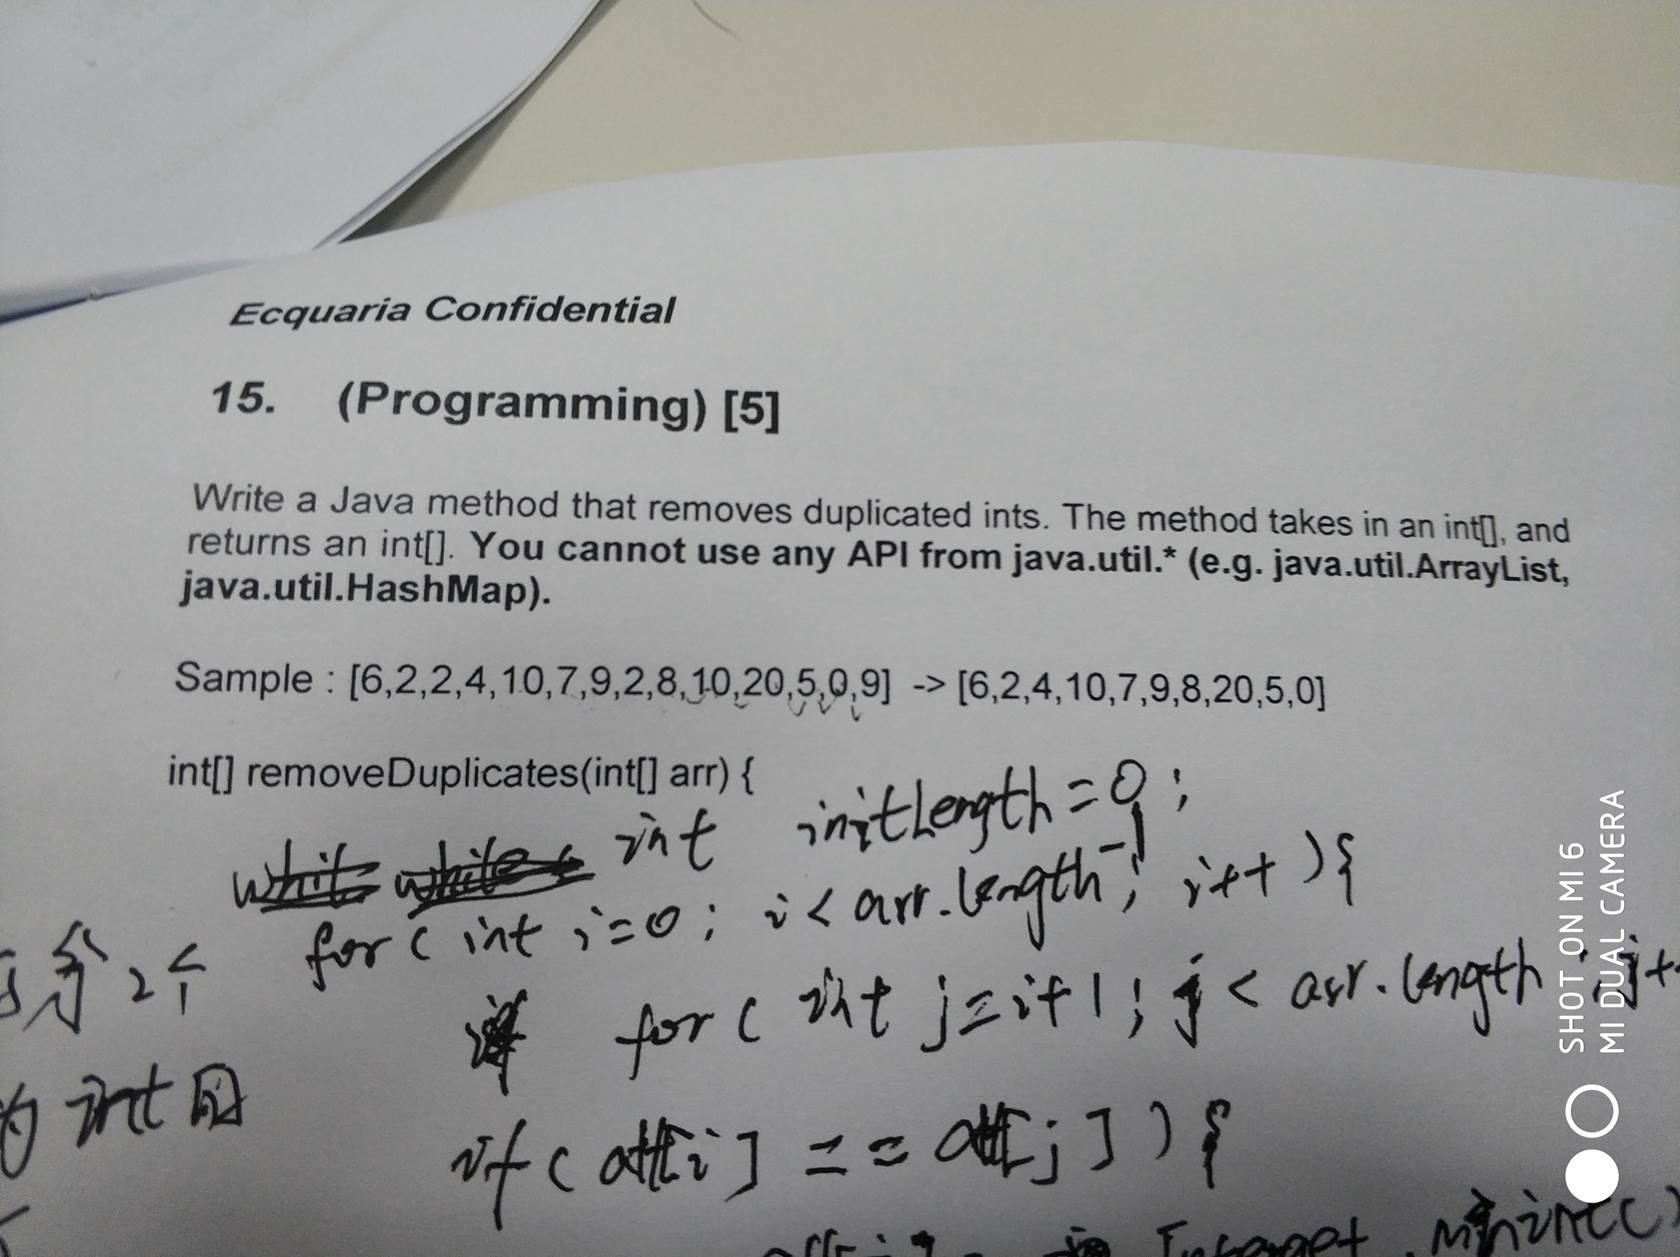 Ecquaria Confidential
15. (Programming) [5]
Write a Java method that removes duplicated ints. The method takes in an int[], and
returns an int[]. You cannot use any API from java.util.* (e.g. java.util.ArrayList,
java.util.HashMap).
Sample : [6,2,2,4,10,7,9,2,8,10,20,5,0,9] -> [6,2,4,10,7,9,8,20,5,0]
int[] removeDuplicates(int[] arr) {
int initLength = 0;
for ( int i=0; i < arr.length-1; i++ ){
for ( int j=i+1; j < arr.length; j+
if ( arr[i] == arr[j] ) {
2个
int
SHOT ON MI 6
MI DUAL CAMERA